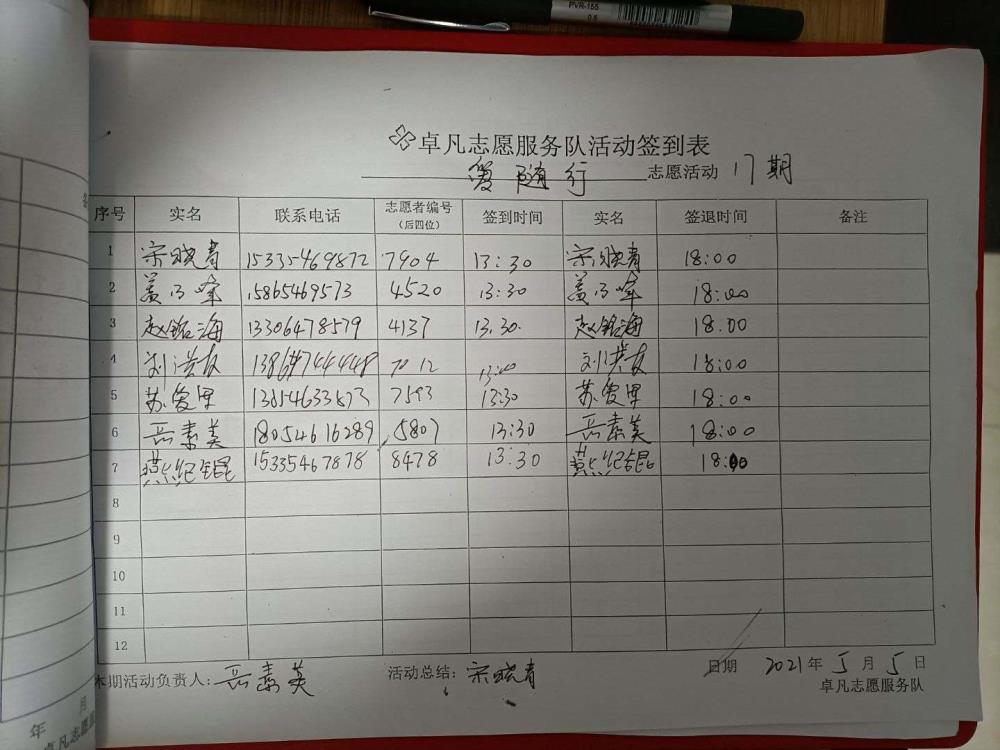 PVR-155
0.5
卓凡志愿服务队活动签到表
爱随行 志愿活动 17期
序号 实名 联系电话 志愿者编号（后四位） 签到时间 实名 签退时间 备注
1 宋晓青 15335469872 7904 13:30 宋晓青 18:00
2 15865469573 4520 13:30 18:00
3 赵铭海 13306478579 4137 13.30 赵铭海 18.00
4 刘洪友 7012 13:00 刘洪友 18:00
5 苏爱军 7593 13:30 苏爱军 18:00
6 岳素美 18054616289 5807 13:30 岳素美 18:00
7 燕纪锟 15335467878 8478 13:30 燕纪锟 18:00
8
9
10
11
12
本期活动负责人：岳素美 活动总结：宋晓青 日期 2021年5月5日
卓凡志愿服务队
年 月
卓凡志愿服